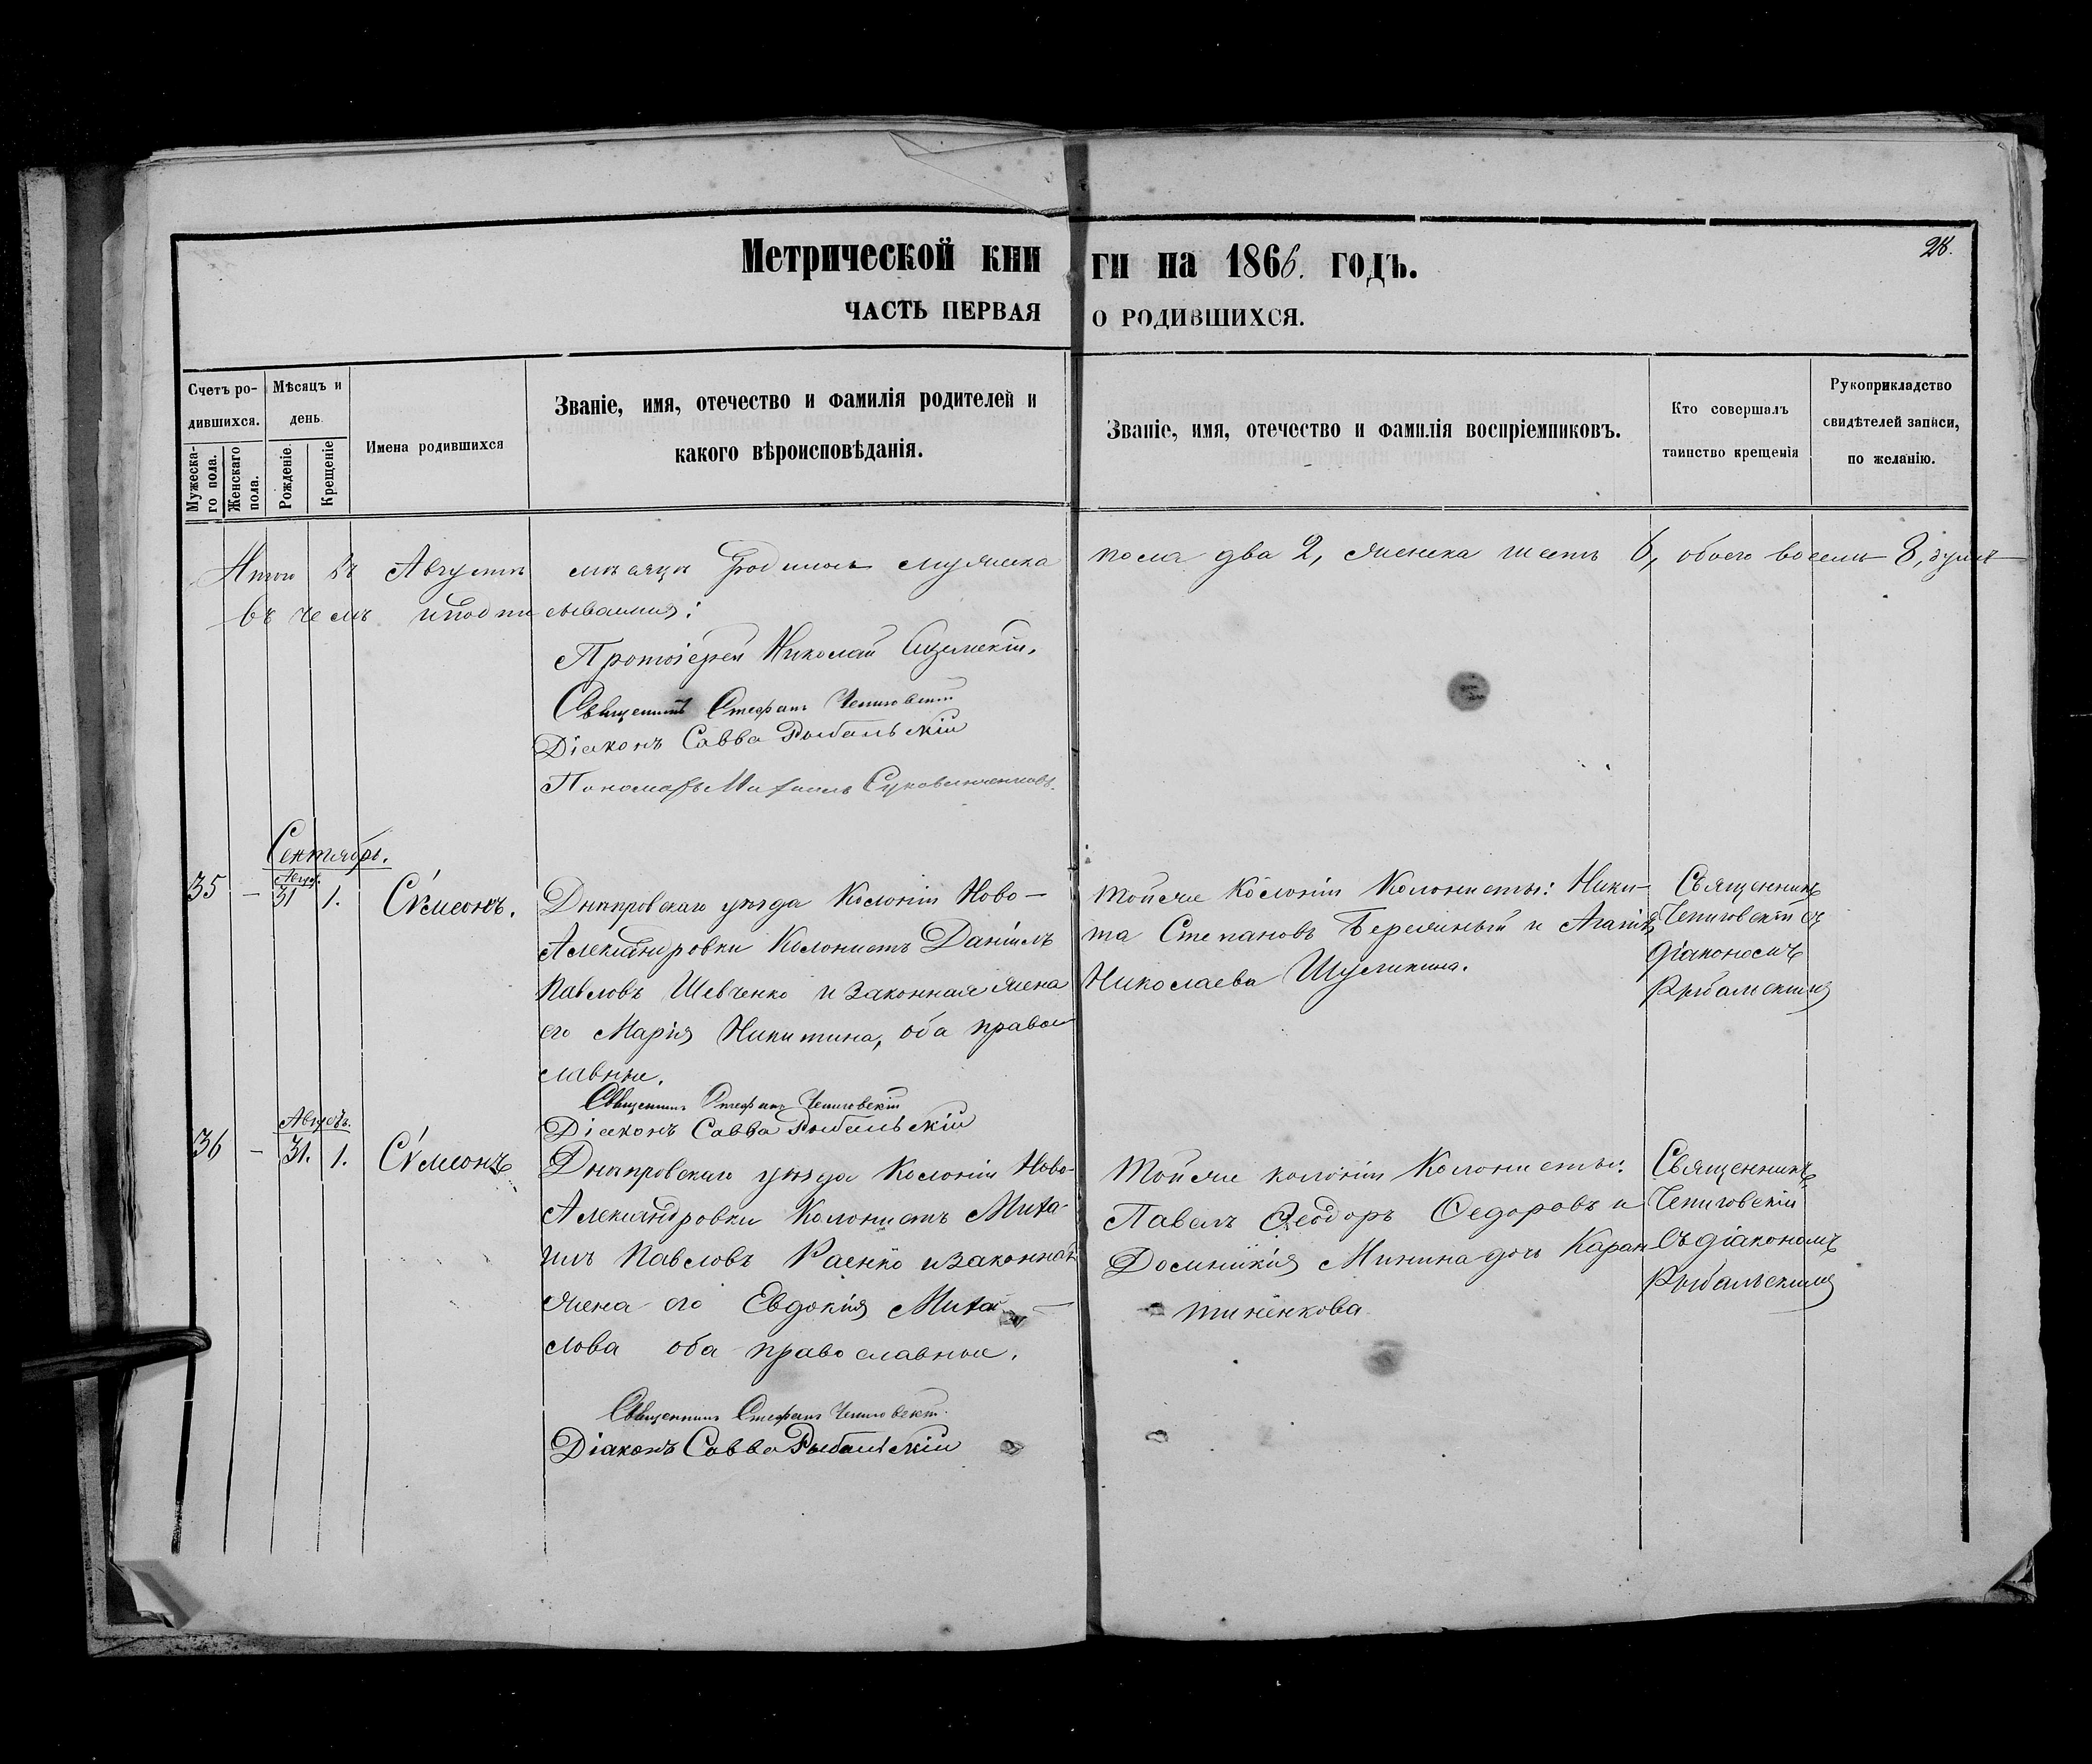 28.
Метрической кни ги на 1866. годъ.
ЧАСТЬ ПЕРВАЯ О РОДИВШИХСЯ.
Счетъ ро-
дившихся.
Мужеска-
го пола.
Женскаго
пола.
Мѣсяцъ и
день.
Рожденіе.
Крещеніе
Имена родившихся
Званіе, имя, отечество и фамилія родителей и
какого вѣроисповѣданія.
Званіе, имя, отечество и фамилія воспріемниковъ.
Кто совершалъ
таинство крещенія
Рукоприкладство
свидѣтелей записи,
по желанію.
Итого въ Августѣ мѣсяцѣ родилось мужеска пола два 2, женска шесть 6, обоего восемь 8, душъ
въ чемъ и подписываемся:
Протоіерей Николай
Священникъ Стефанъ Чепиговскій
Діаконъ Савва Рыбальскій
Пономарь Михаилъ
Сентябрь.
35 — Авгус. 31 1. Сѵмеонъ.
Днѣпровскаго уѣзда Колоніи Ново-
Александровки Колонистъ Даніилъ
Павловъ Шевченко и законная жена
его Марія Никитина, оба право-
славные.
Священникъ Стефанъ Чепиговскій
Діаконъ Савва Рыбальскій
Той же Колоніи Колонисты: Ники-
та Степановъ Бережный и Агапія
Николаева
Священникъ
Чепиговскій съ
діакономъ
Рыбальскимъ
36 — Августъ. 31. 1. Сѵмеонъ
Днѣпровскаго уѣзда Колоніи Ново-
Александровки Колонистъ Миха-
илъ Павловъ Раенко и законная
жена его Евдокія Михай-
лова оба православные.
Священникъ Стефанъ Чепиговскій
Діаконъ Савва Рыбальскій
Той же колоніи Колонисты:
Павелъ Ѳеодоръ Ѳедоровъ и
Домникія Минина дочь Каран-
тиненкова
Священникъ
Чепиговскій
съ діакономъ
Рыбальскимъ